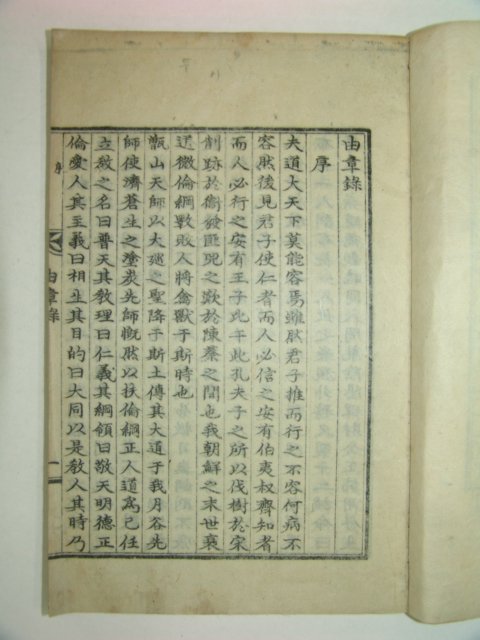 由章錄
序
夫道大天下莫能容焉雖然君子推而行之不容何病不
容然後見君子使仁者而人必信之安有伯夷叔齊知者
而人必行之安有王子此干此孔夫子之所以伐樹於宋
削跡於衛發匪兕之歎於陳蔡之間也我朝鮮之末世衰
道微倫綱斁敗人將禽獸于斯時也
甑山天師以大巡之聖降于斯土傳其大道于我月谷先
師使濟蒼生之塗炭先師慨然以扶倫綱正人道爲己任
立教之名曰普天其教理曰仁義其綱領曰敬天明德正
倫愛人其主義曰相生其目的曰大同以是教人其時乃
序
由章錄
一